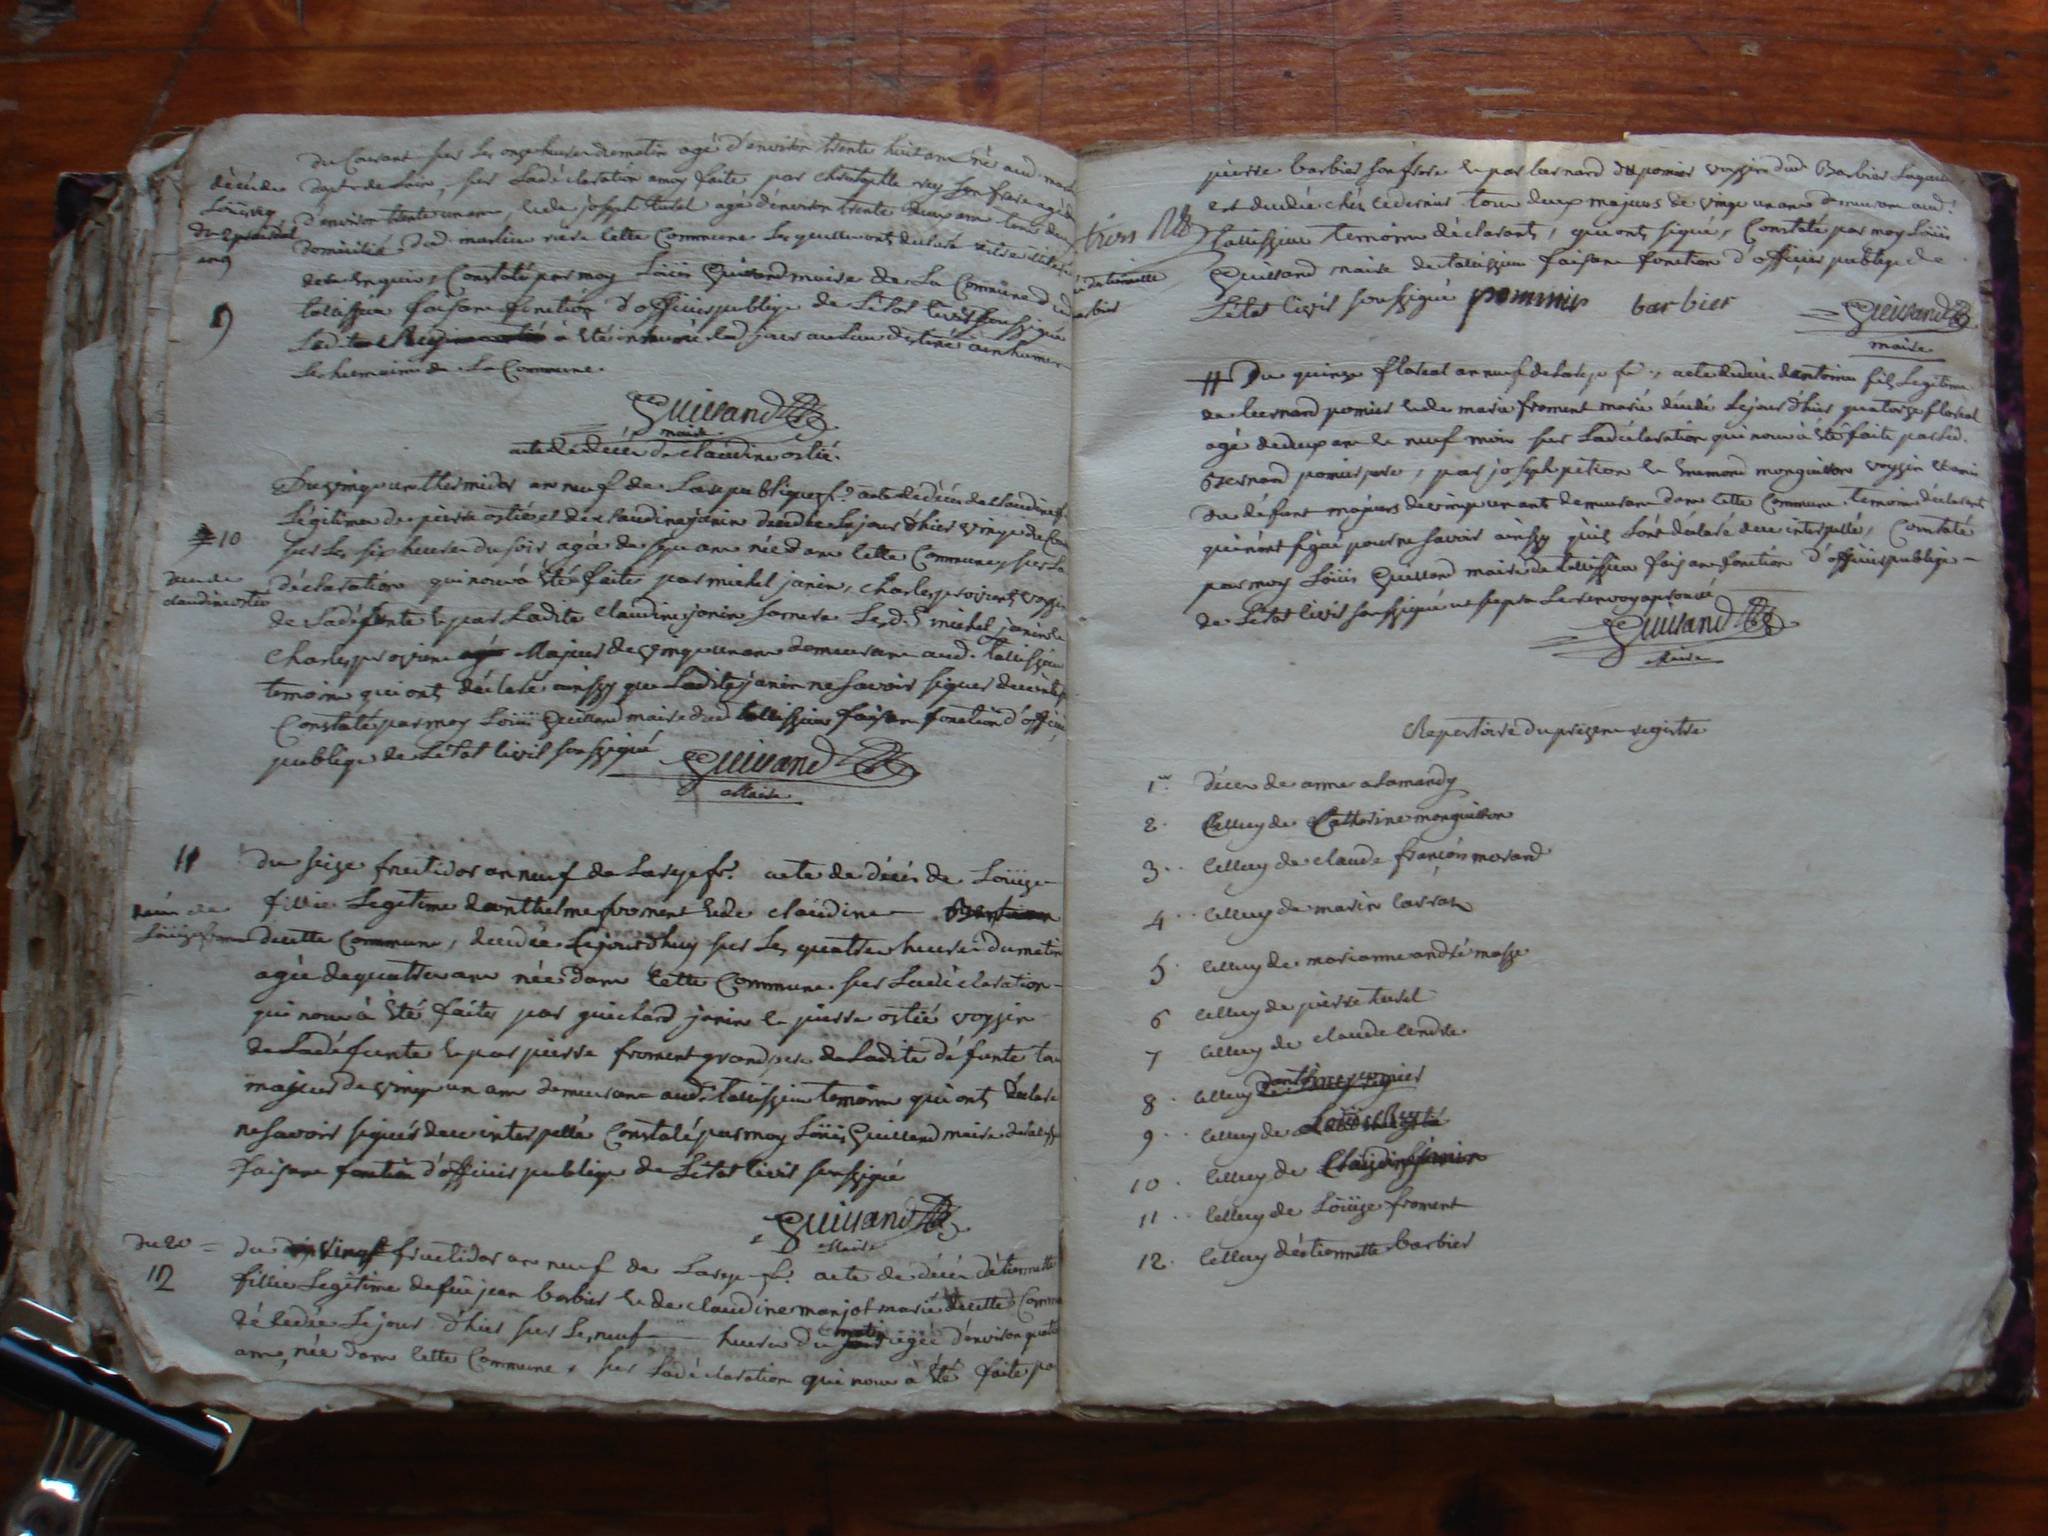 du Courant sur les onze heures du matin agé d'environ trente huit ans né aud.
décéde
Loüis rey
du 2 prairial
an 9
dept de Loire, sur la déclaration a moy faite par rey son frere agé
d'environ trente un ans, et de joseph turel agé d'environ trente deux ans tous deux
domiciliés dud. martin riere cette Commune lesquels ont declaré
de ce enquis, Constaté par moy Loüis Guilland maire de La Commune dud
9
talissieu faisant fonction d'officier publique de L'état Civil soussigné
Led. à été inhumé led jour au lieu destiné a inhumer
les humains de La Commune.
Guilland
maire
acte de décès de claudine ostié.
Du vingt un thermidor an neuf de La republique fr. acte de décès de Claudine f
Légitime de pierre ostié et de claudine janin décédée le jour d'hier vingt du Cour
10
sur les six heures du soir agée de sept ans née dans cette Commune, sur La
décès de
claudine ostié
déclaration qui nous à été faite par michel janin, charles proviens voysin
de La défunte et par Ladite claudine janin sa mere Led. michel janin et
charles provien Majeurs de vingt un ans demeurant aud. Talissieu
temoins qui ont déclaré ainssy que Ladite janin ne savoir signer de ce interp
Constaté par moy Loüis Guilland maire dud tallissieu faisan fonction d'offici
publiqe de L'état Civil soussigné
Guilland
Maire
11
du seize fructidor an neuf de La rep. fr. acte de décès de Loüize
décès de
Loüize froment
fillie Legitime d'anthelme froment et de claudine
de cette Commune, décédée Cejourdhuy sur les quatre heures du matin
agée de quatre ans née dans cette Commune sur La déclaration
qui nous à été faite par guichard janin et pierre ostié voysin
de La défunte et par pierre froment grand pere de Ladite défunte tou
majeurs de vingt un ans demeurant aud. talissieu temoins qui ont déclaré
ne savoir signer de ce interpellé Constaté par moy Loüis Guilland maire de
faisant fonction d'officier publiqe de L'état Civil soussigné
Guilland
Maire
du 20
du vingt fructidor an neuf de La rep. fr. acte de décès d'étiennette
12
fillie Legitime de feü jean barbier et de claudine manjot marié de cette Commu
décédée Le jour d'hier sur les neuf heures du matin agée d'environ quatre
ans, née dans cette Commune, sur La déclaration qui nous à été faite pa
pierre barbier son frere et par bernard pomier voyssin dud Barbier Laquelle
est décédée chez ce dernier tous deux majeurs de vingt un ans demeurans aud.
talissieu temoins déclarants, qui ont signé, Constaté par moy Loüis
étiennette
barbier
Guilland maire de talissieu faisan fonction d'officier publiqe de
L'état Civil soussigné pommier barbier
Guilland
maire
Du quinze floreal an neuf de La rep fr., acte de décès d'antoine fils Legitime
de bernard pomier et de marie froment marié décédé Le jour d'hier quatorze floreal
agé de deux ans et neuf mois sur La déclaration qui nous à été faite par led.
bernard pomier pere, par joseph pition et monguillon voyzin et ami
du défunt majeurs de vingt un ans demeurans dans cette Commune. temoins déclarants
qui n'ont signé pour ne savoir ainssy qu'ils L'ont déclaré de ce interpellé, Constaté
par moy Loüis Guilland maire de tallissieu faisan fonction d'officier publiqe
de L'état Civil soussigné Le renvoy aprouvé
Guilland
Maire
Repertoire du présent registre
1er décès de anne alamandy
2. Celluy de Catherine monguillon
3. Celluy de claude françois morand
4. Celluy de marin
5. Celluy de marianne andré masse
6 Celluy de pierre turel
7 Celluy de claude Cendre
8. Celluy d'antoine pomier
9. Celluy de Loüis Rey
10. Celluy de Claudine
11. Celluy de Loüize froment
12. Celluy d'étiennette barbier